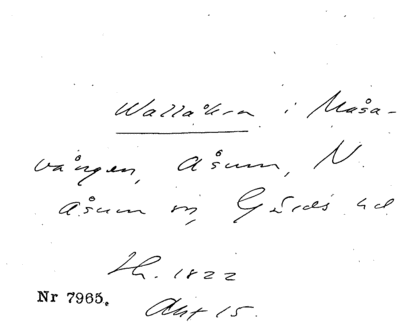 Wallåkra i Måsa-
vången, Åsum, N.
Åsum sn, Gärds hd
Lh. 1822
Nr 7965.
Akt 15.